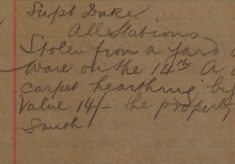 Supt Duke
All Stations
Stolen from a yard
Ware on the 14th A
carpet hearthrug
value 14/- the property
Smith